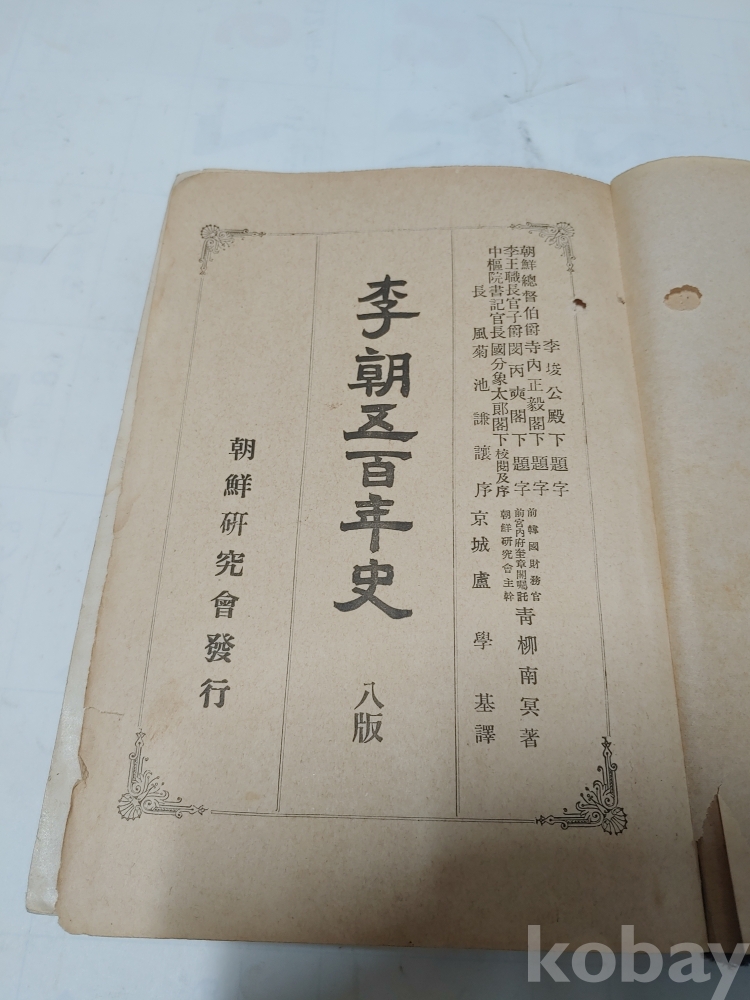 李埈公殿下題字
朝鮮總督伯爵寺內正毅閣下題字
李王職長官子爵閔丙奭閣下題字
中樞院書記官長國分象太郎閣下校閱及序
長風菊池謙讓序
前韓國財務官
前宮內府奎章閣囑託
朝鮮硏究會主幹
靑柳南冥著
京城盧學基譯
李朝五百年史
八版
朝鮮硏究會發行
kobay